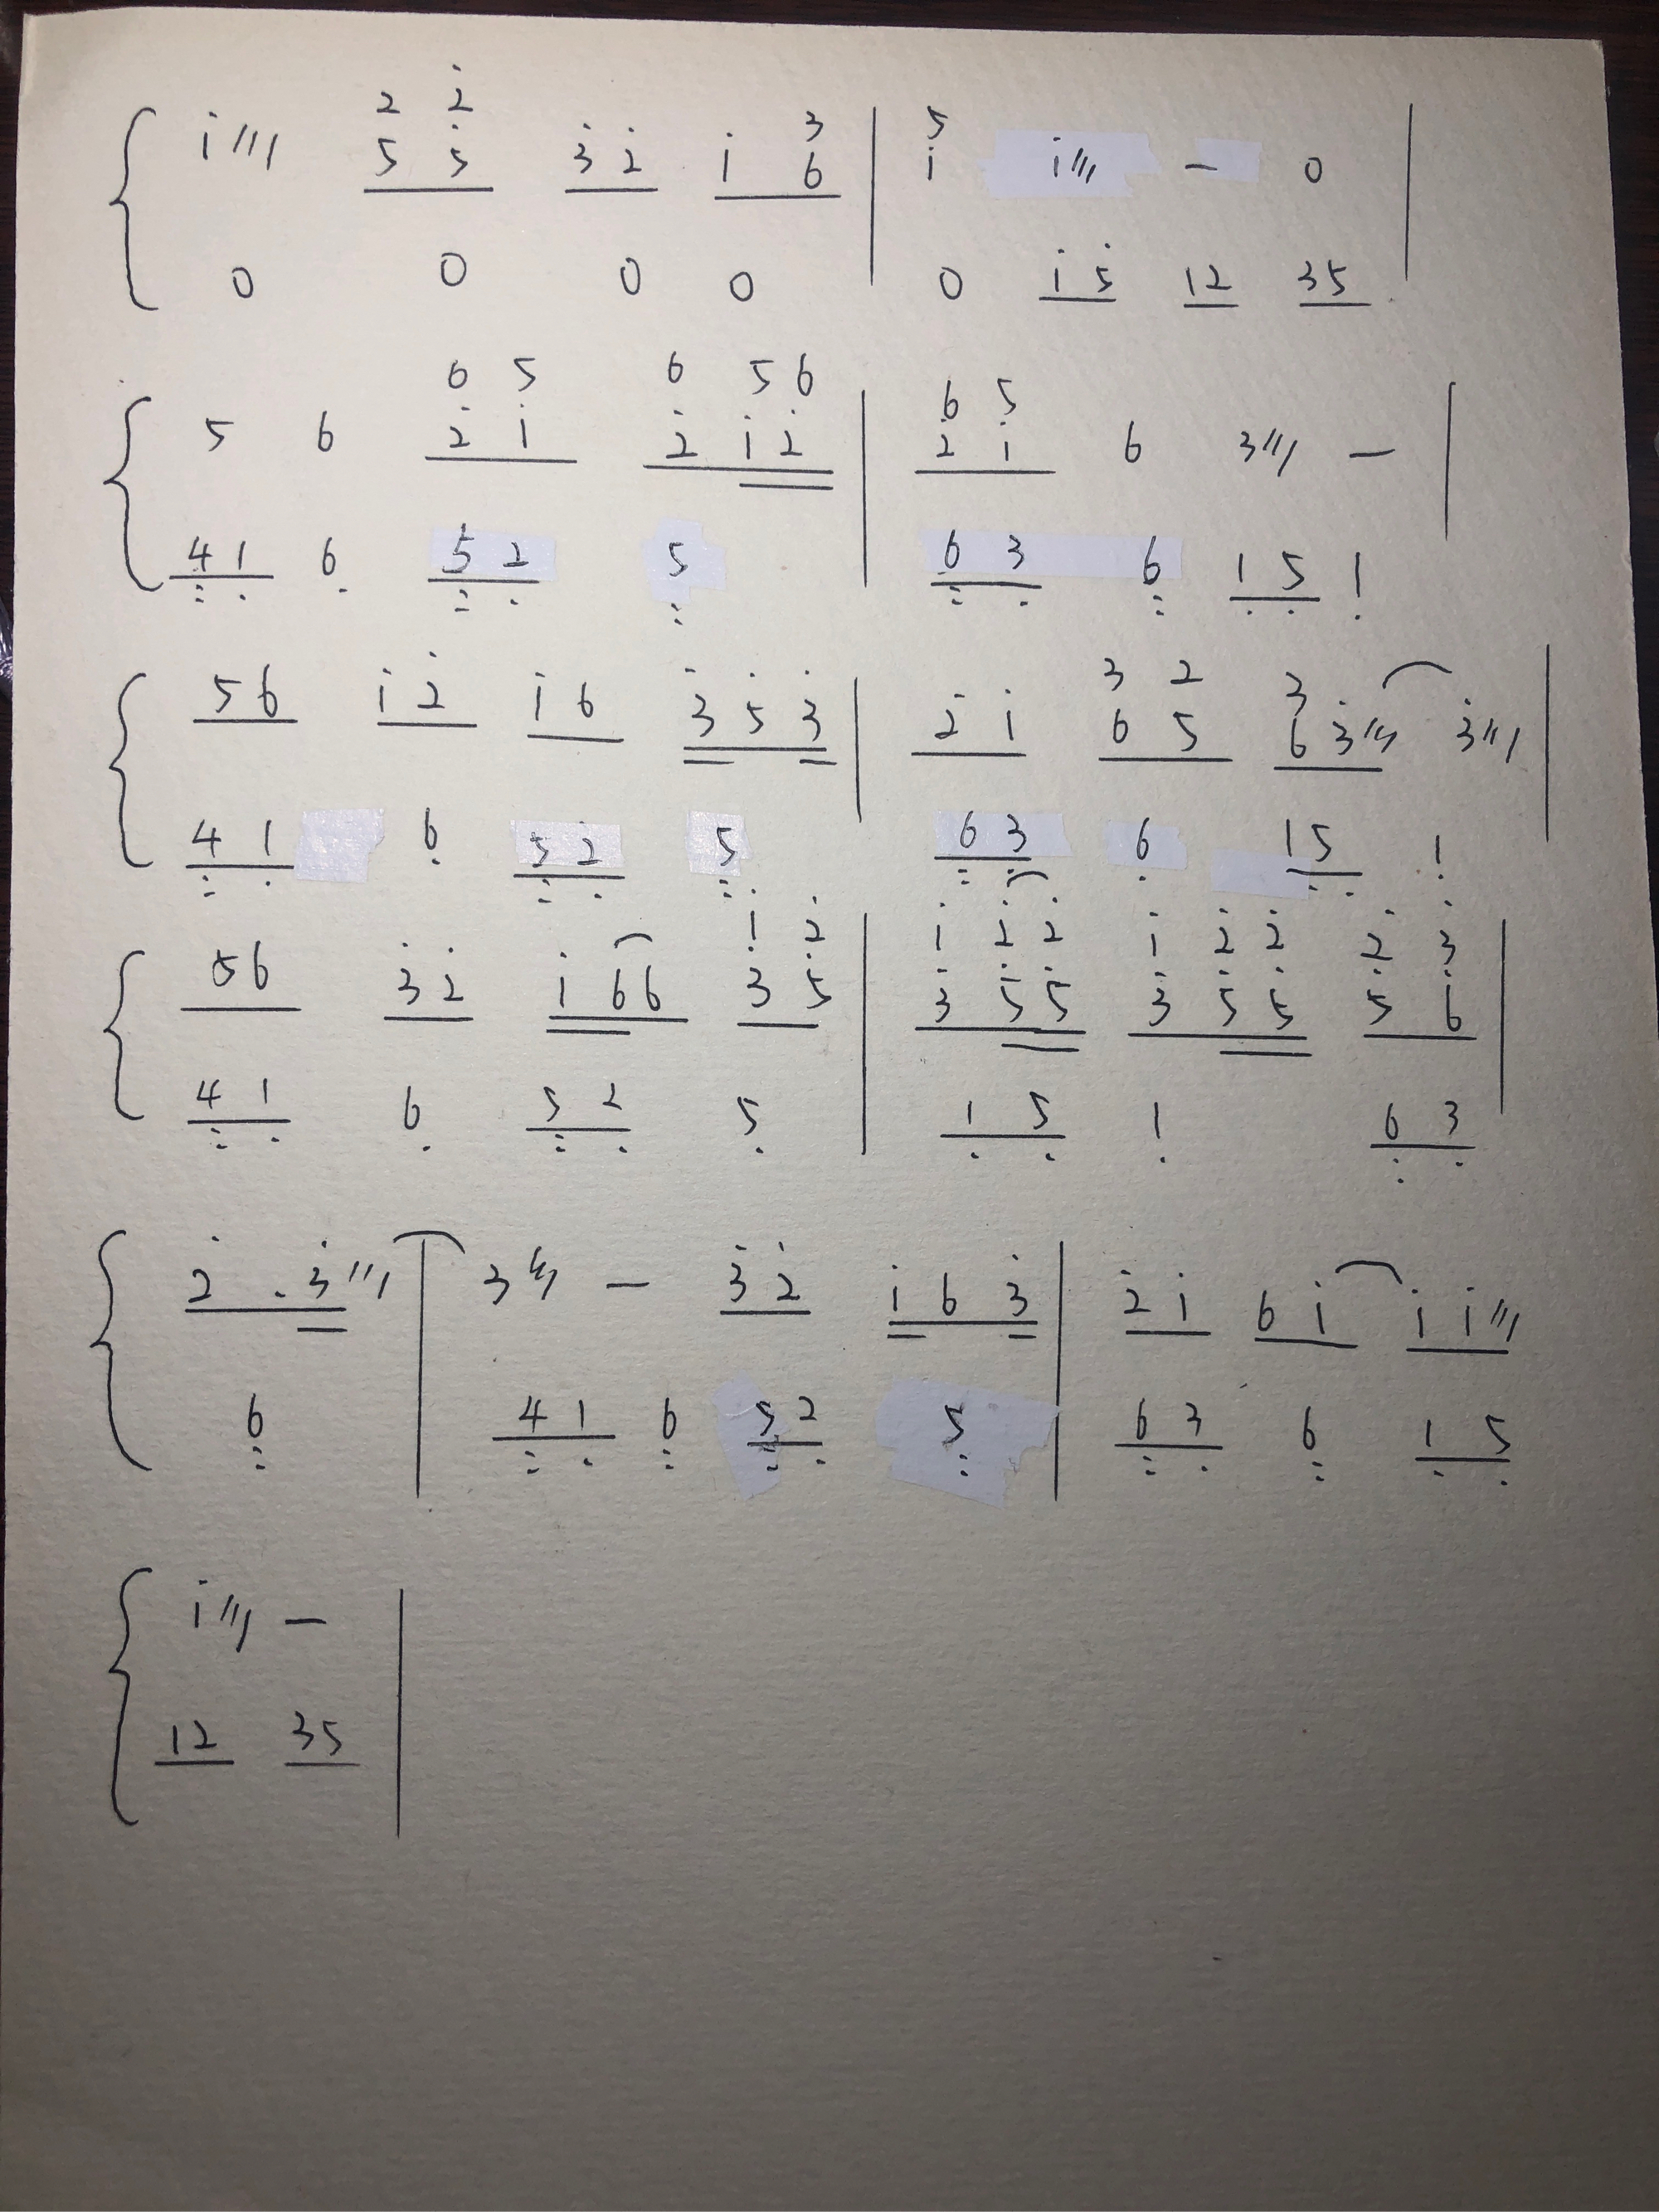 2 2̇ 3
i /// 5 5̇ 3̇ 2̇ i 6 | 5 i i /// – 0 |
0 0 0 0 | 0 i 5̇ 12 35 |
6 5 6 5 6 | 6 5
5 6 2̇ i 2̇ i 2̇ | 2̇ i 6 3 /// – |
4 1 6 5 2 5 | 6 3 6 1 5 1
3 2 3
56 i 2̇ i 6 3̇ 5̇ 3̇ | 2̇ i 6 5 6 3̇ /// 3̇ /// |
4 1 6 5 2 5 | 6 3 6 15 1
i 2̇ | i 2̇ 2̇ i 2̇ 2̇ 2̇ 3̇
56 3̇ 2̇ i 66 3̇ 5̇ | 3̇ 5̇ 5̇ 3̇ 5̇ 5̇ 5̇ 6̇ |
4 1 6 5 2 5 | 1 5 1 6 3
2̇ . 3̇ /// | 3 /// – 3̇ 2̇ i 6 3̇ | 2̇ i 6 i i i ///
6 | 4 1 6 5 2 5 | 6 3 6 1 5
i /// – |
12 35 |